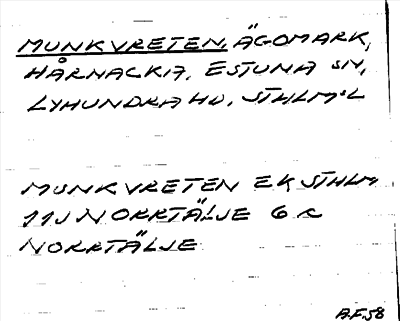 MUNKVRETEN, ÄGOMARK,
HÅRNACKA, ESTUNA SN,
LYHUNDRA HD, STHLM:L
MUNKVRETEN EK STHLM
11J NORRTÄLJE 6 c
NORRTÄLJE
A.F.58